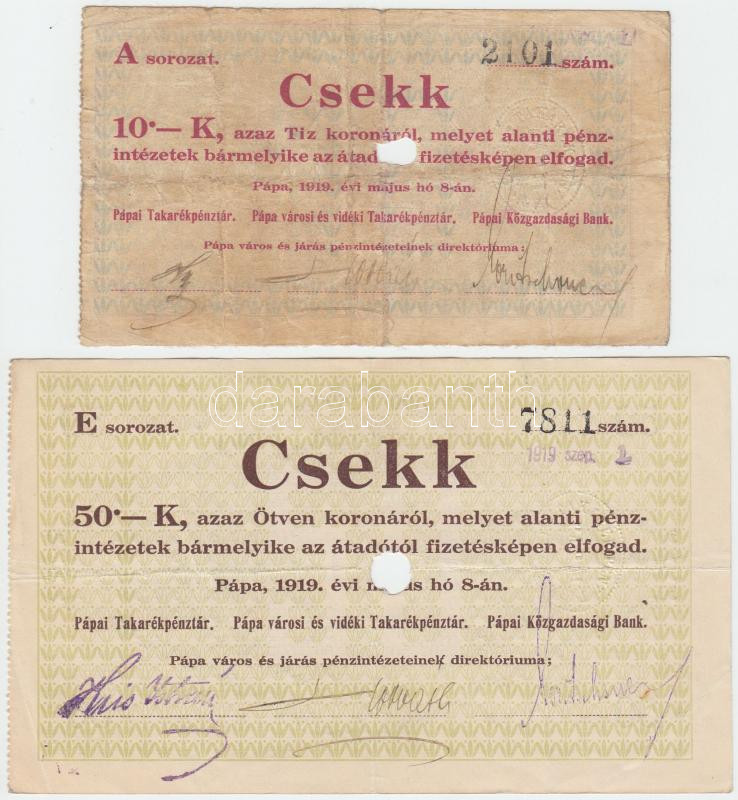 A sorozat. 2101 szám.
Csekk
10·— K, azaz Tiz koronáról, melyet alanti pénz-
intézetek bármelyike az átad fizetésképen elfogad.
Pápa, 1919. évi május hó 8-án.
Pápai Takarékpénztár. Pápa városi és vidéki Takarékpénztár. Pápai Közgazdasági Bank.
Pápa város és járás pénzintézeteinek direktóriuma:
darabanth
E sorozat. 7811 szám.
1919 szep. 2
Csekk
50·— K, azaz Ötven koronáról, melyet alanti pénz-
intézetek bármelyike az átadótól fizetésképen elfogad.
Pápa, 1919. évi m us hó 8-án.
Pápai Takarékpénztár. Pápa városi és vidéki Takarékpénztár. Pápai Közgazdasági Bank.
Pápa város és járás pénzintézeteinek direktóriuma;
Horváth